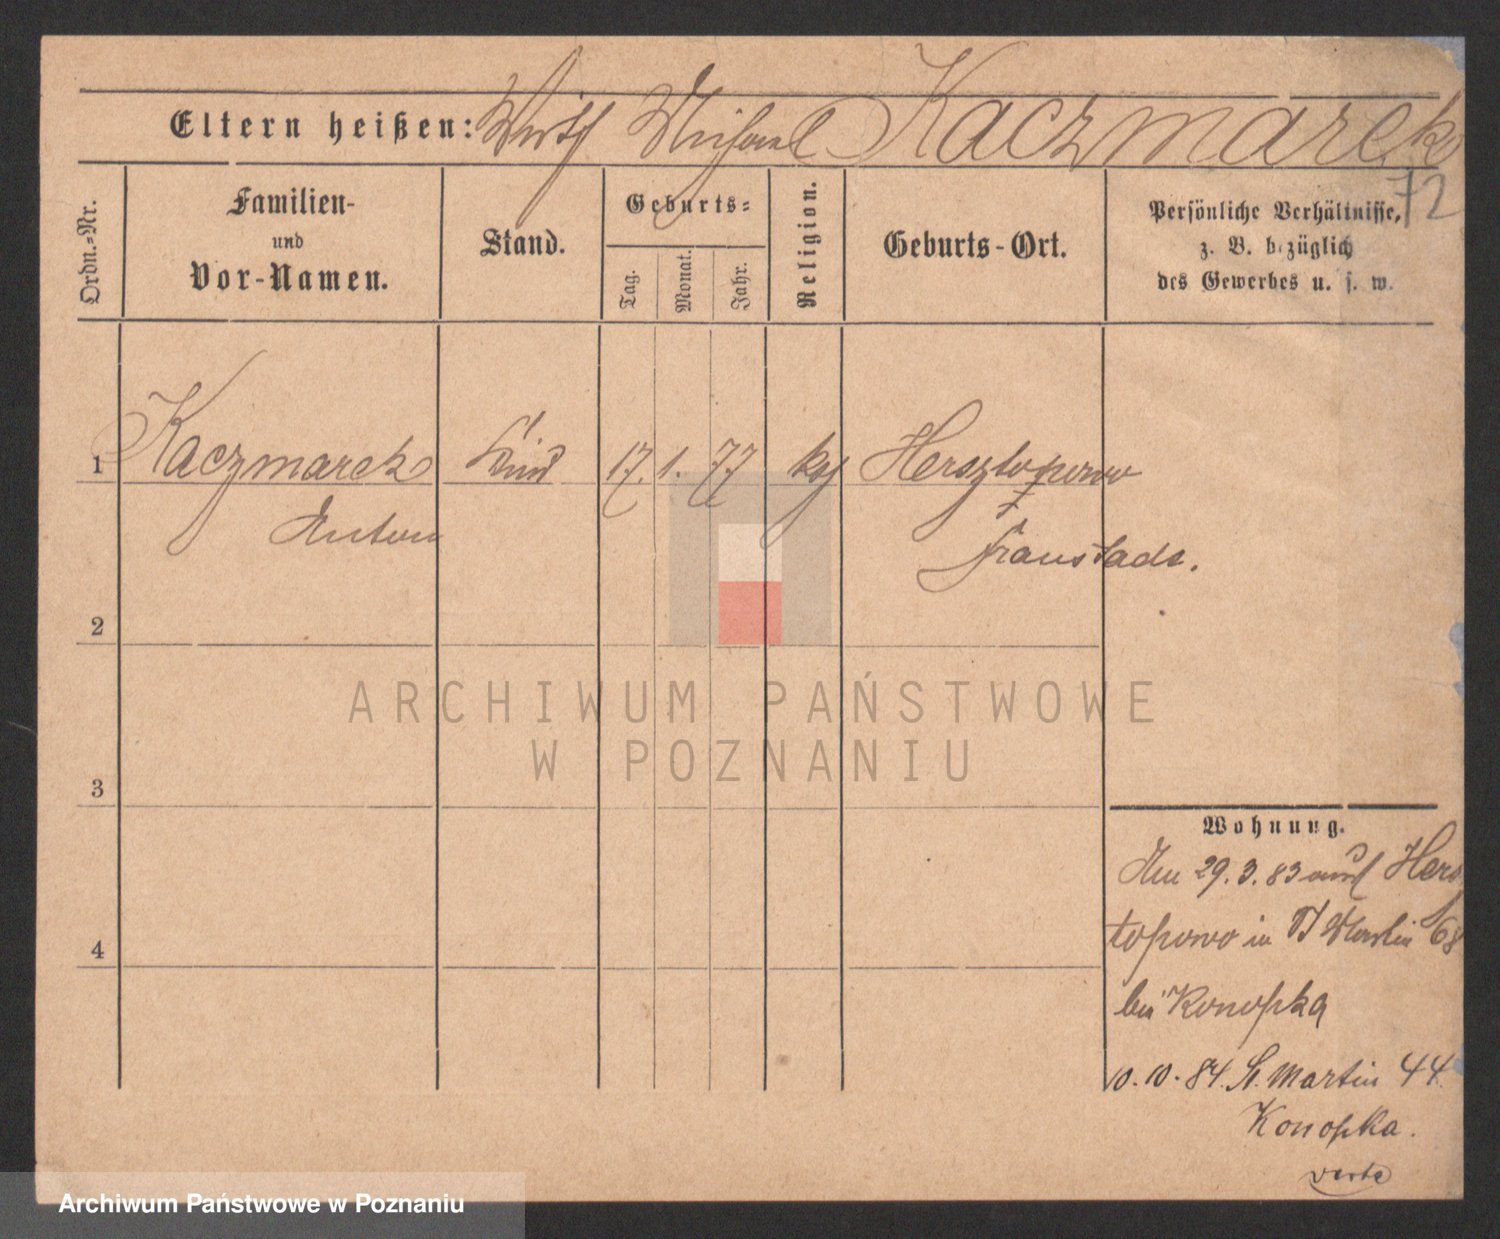 Eltern heißen: Wirth Michael Kaczmarek
72
Ordn.-Nr.
Familien-
und
Vor-Namen.
Stand.
Geburts-
Tag.
Monat.
Jahr.
Religion.
Geburts-Ort.
Persönliche Verhältnisse,
z. B. bezüglich
des Gewerbes u. s. w.
1 Kaczmarek Kind 17. 1. 77 kth Hersztopowo
Anton Fraustadt.
2
3
4
ARCHIWUM PAŃSTWOWE
W POZNANIU
Wohnung.
Am 29.3.83 aus Hersz
topowo in St Martin 68
bei Konopka
10.10.84. St. Martin 44.
Konopka.
verte
Archiwum Państwowe w Poznaniu